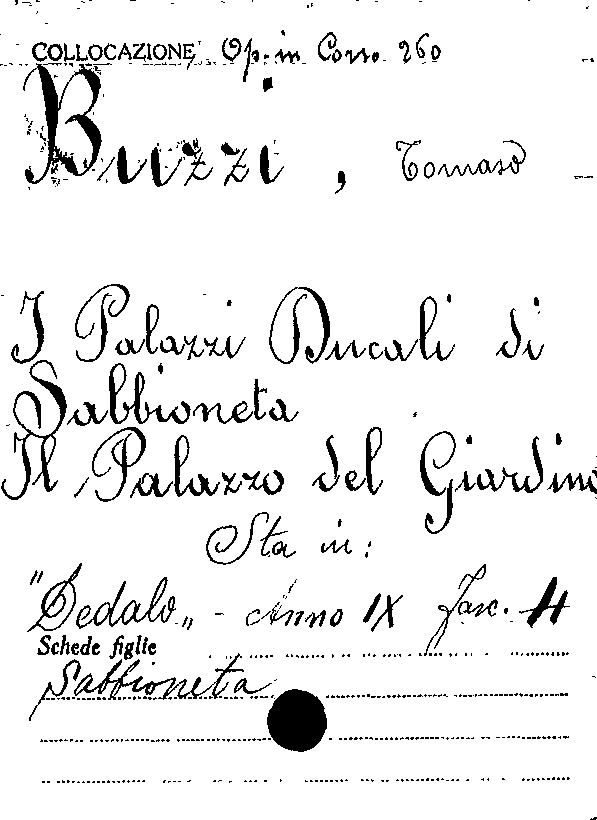 COLLOCAZIONE Op. in Corso 260
Buzzi, Tomaso
I Palazzi Ducali di
Sabbioneta
Il Palazzo del Giardino
Sta in:
"Dedalo" - Anno IX Fasc. 4
Schede figlie
Sabbioneta